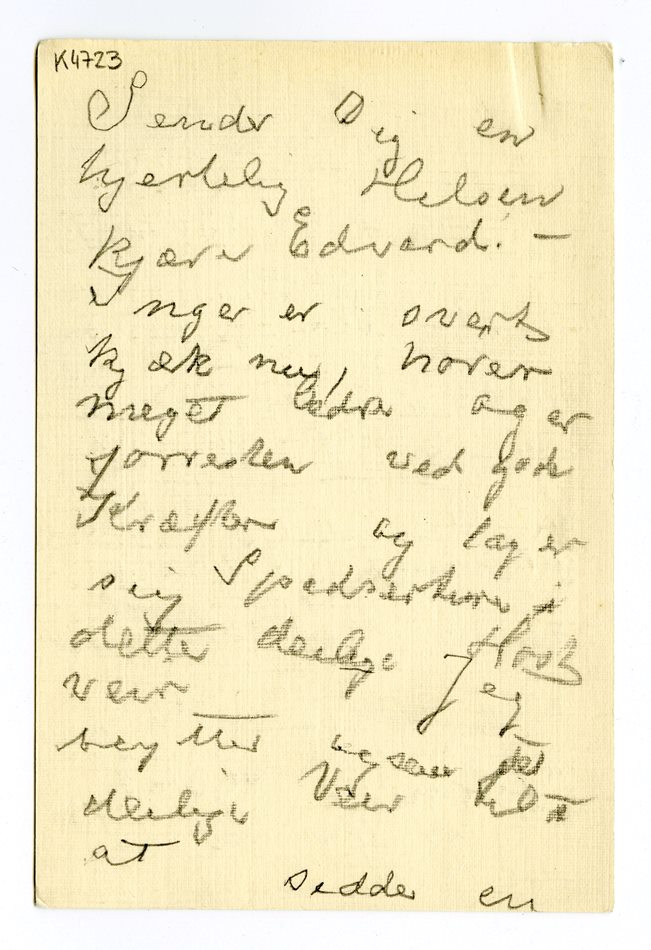 K4723
Sender Dig en
hjertelig Helsen
kjære Edvard. –
Inger er svært
kjæk nu, hoster
meget bedre og er
forresten ved gode
Kræfter og tager
sig Spadserture i
dette deilige Høst
veir Jeg
benytter ogsaa det
deilige Veir til
at
sidde en